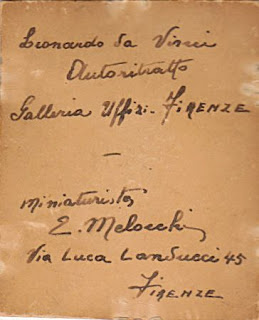 Leonardo da Vinci
Autoritratto
Galleria Uffizi - FIRENZE
—
Miniaturista
E. Melocchi
Via Luca Landucci 45
FIRENZE